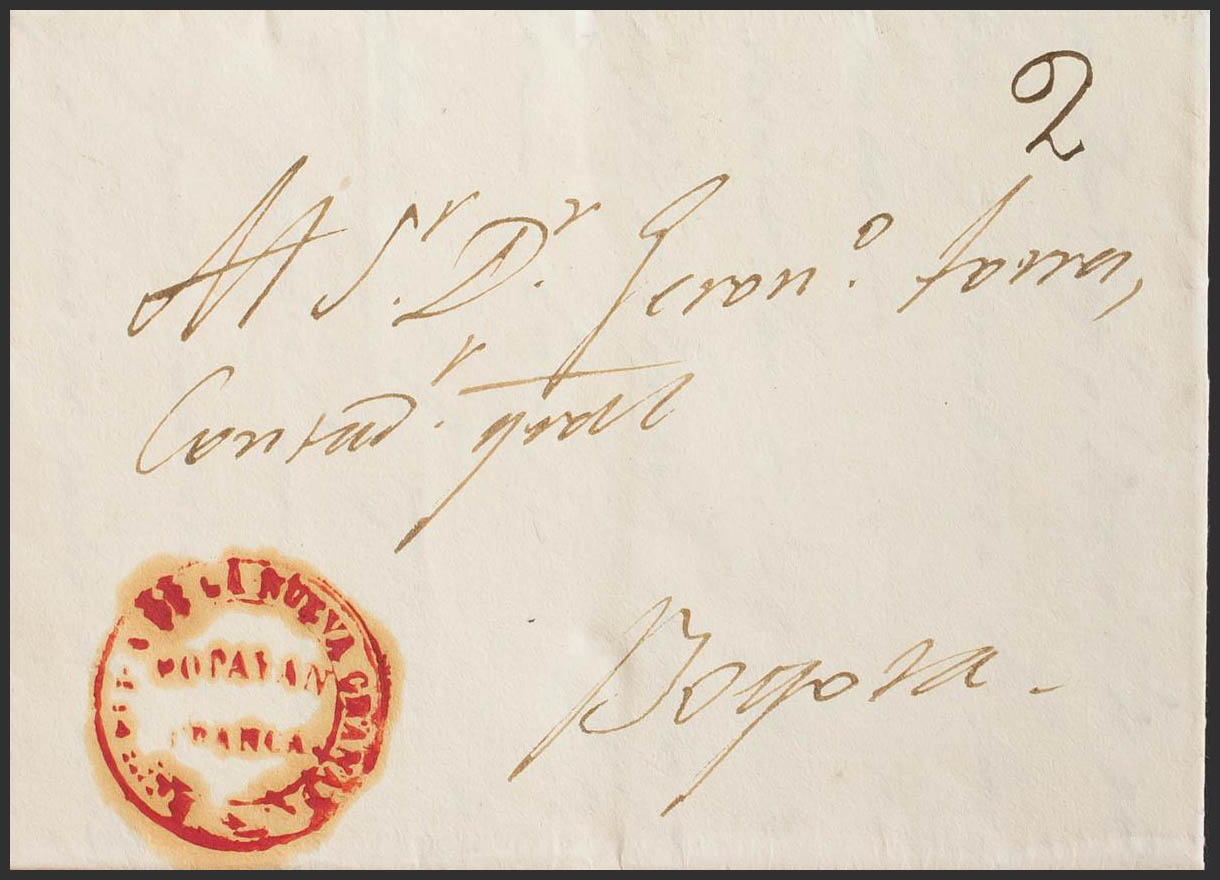 2
Al S.r D.r Geron.o Torres,
Contad.r gral
Bogota.
DE LA NUEVA GRANADA
POPAYAN
FRANCA